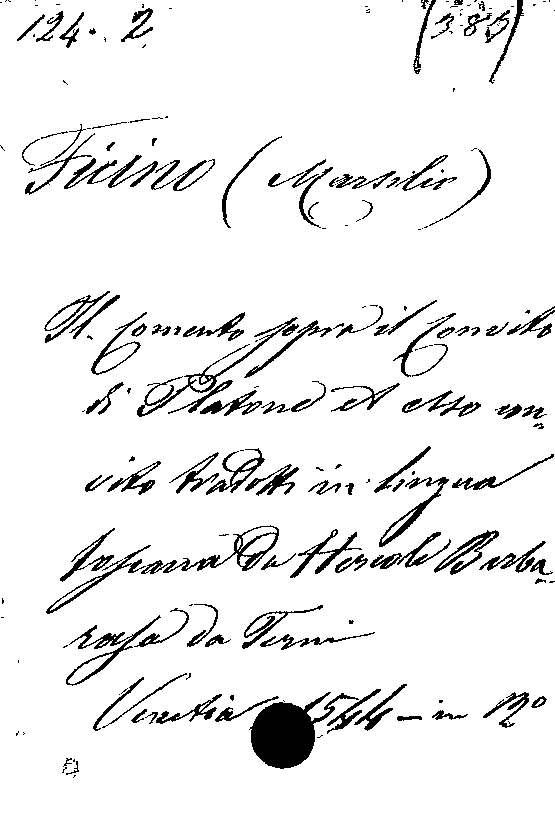 124. 2 (385)
Ficino (Marsilio)
Il Comento sopra il Convito
di Platone et esso con-
vito tradotti in lingua
toscana da Hercole Barba-
rasa da Terni
Venetia 1544 - in 12º